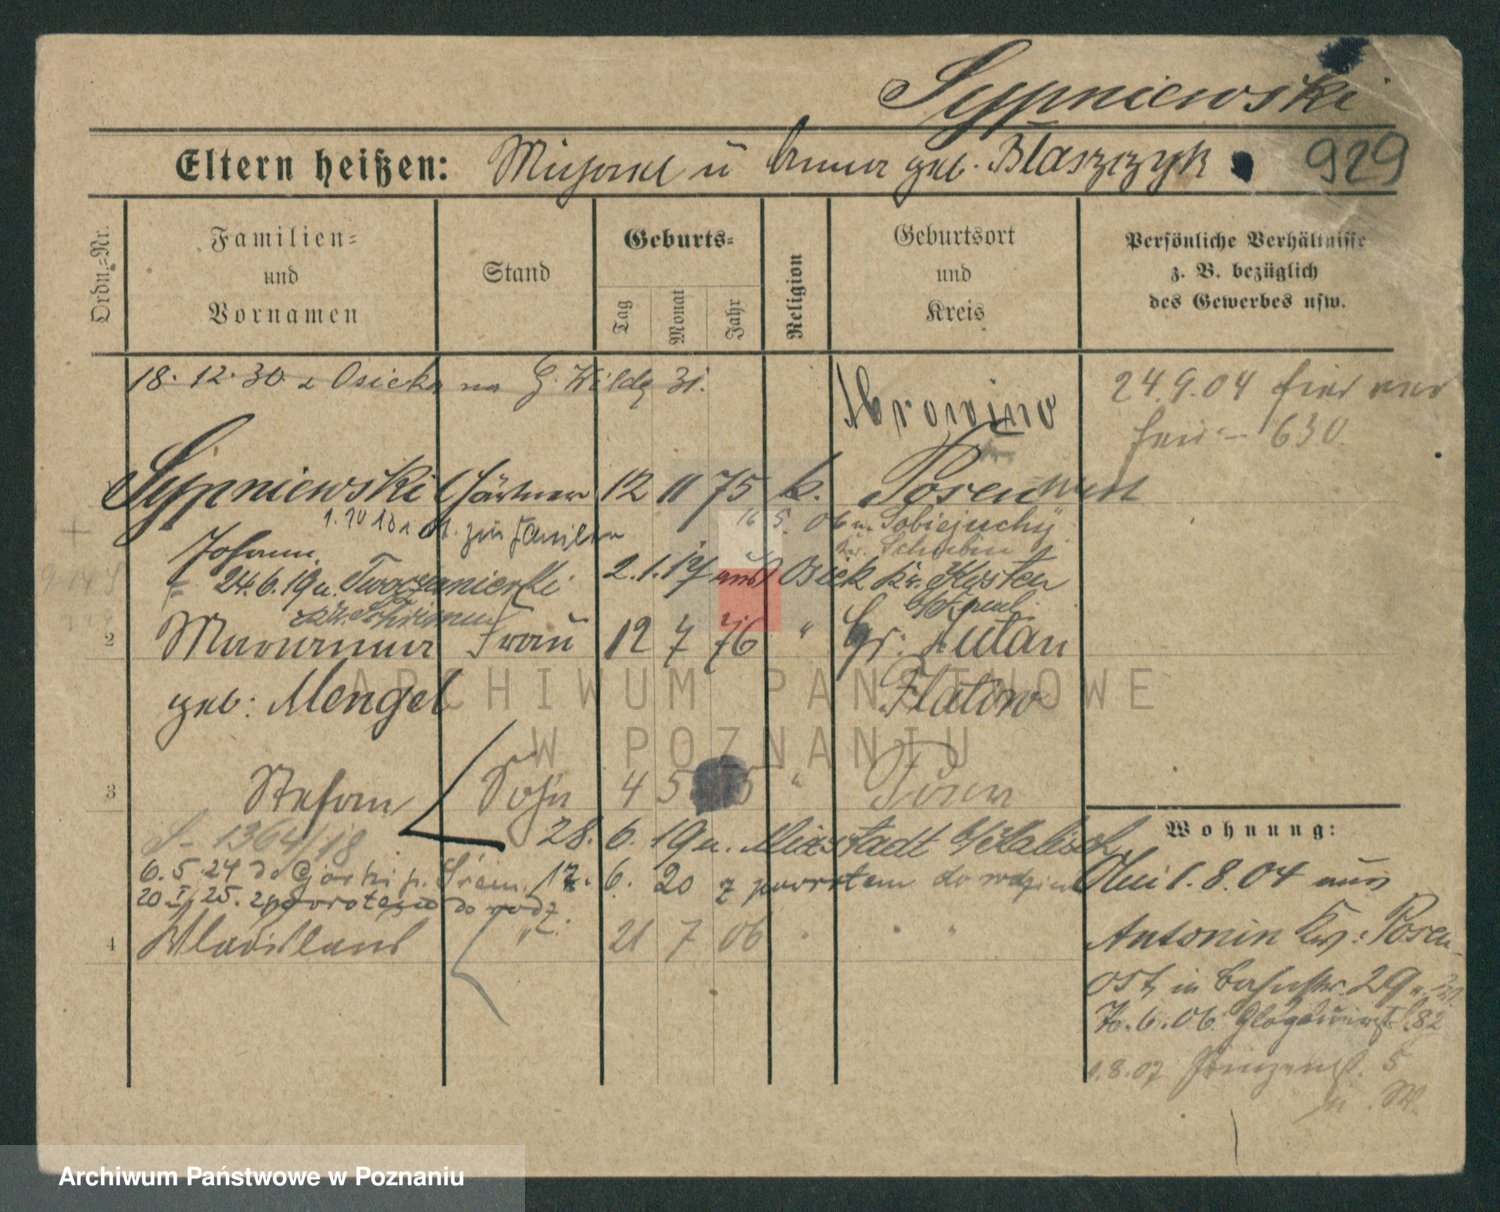 Sypniewski
Eltern heißen: Michael u Anna geb. Blaszczyk 929
Ordn.-Nr.
Familien- und Vornamen
Stand
Geburts-
Tag Monat Jahr
Religion
Geburtsort und Kreis
Persönliche Verhältnisse z. B. bezüglich des Gewerbes usw.
18. 12. 30. z Osiecka na G. Wildę 31.
24.9.04
630
Sypniewski Gärtner 12 11 75 k. Posen West
zur Familie
16 5. 06 n. Sobiejuchy
Kr. Schubin
Johann
24.6.19 n. 2.1.19 aus Osiek Kr. Kosten
Kr. Schrimm
2 Marianna Frau 12 7 76 " Gr. Lutau
geb: Mengel Flatow
3 Stefan Sohn 4 5 05 "
S-1364/18 28. 6. 19 n. Mixstadt
6.5.24 do Górki p. Śrem. 12. 6. 20 z powrotem do rodziny
20 I. 25. z powrotem do rodz.
4 Wladislaus " 21 7 06 " " "
Wohnung:
1.8.04 aus
Antonin Kr: Posen
Ost, in Bahnstr. 29
6.06. Glogauerst. 82
1.8.07 Prinzenst. 5
ARCHIWUM PAŃSTWOWE
W POZNANIU
Archiwum Państwowe w Poznaniu